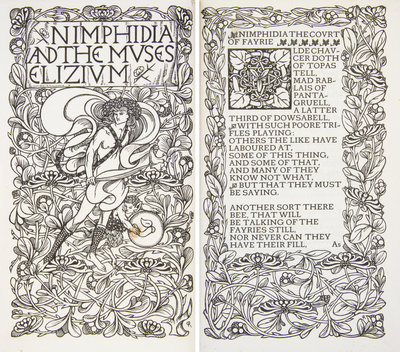 NIMPHIDIA
AND THE MVSES
ELIZIVM
NIMPHIDIA THE COVRT
OF FAYRIE
LDE CHAV-
CER DOTH
OF TOPAS
TELL,
MAD RAB-
LAIS OF
PANTA-
GRUELL,
A LATTER
THIRD OF DOWSABELL,
WITH SUCH POORE TRI-
FLES PLAYING:
OTHERS THE LIKE HAVE
LABOURED AT,
SOME OF THIS THING,
AND SOME OF THAT,
AND MANY OF THEY
KNOW NOT WHAT,
BUT THAT THEY MUST
BE SAYING.
ANOTHER SORT THERE
BEE, THAT WILL
BE TALKING OF THE
FAYRIES STILL,
NOR NEVER CAN THEY
HAVE THEIR FILL, As